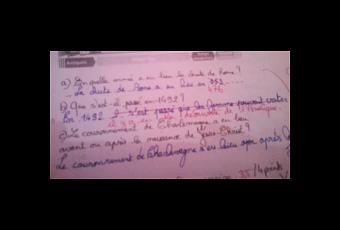 a) En quelle année a eu lieu la chute de Rome ?
La chute de Rome a eu lieu en 953
476
b) Que s'est-il passé en 1492 ?
En 1492 il s'est passé que les femmes pouvait voter
il y a eu la découverte de l'Amérique.
c) Le couronnement de Charlemagne a eu lieu
avant ou après la naissance de Jésus-Christ ?
Le couronnement de Charlemagne a eu lieu après
35/4 points